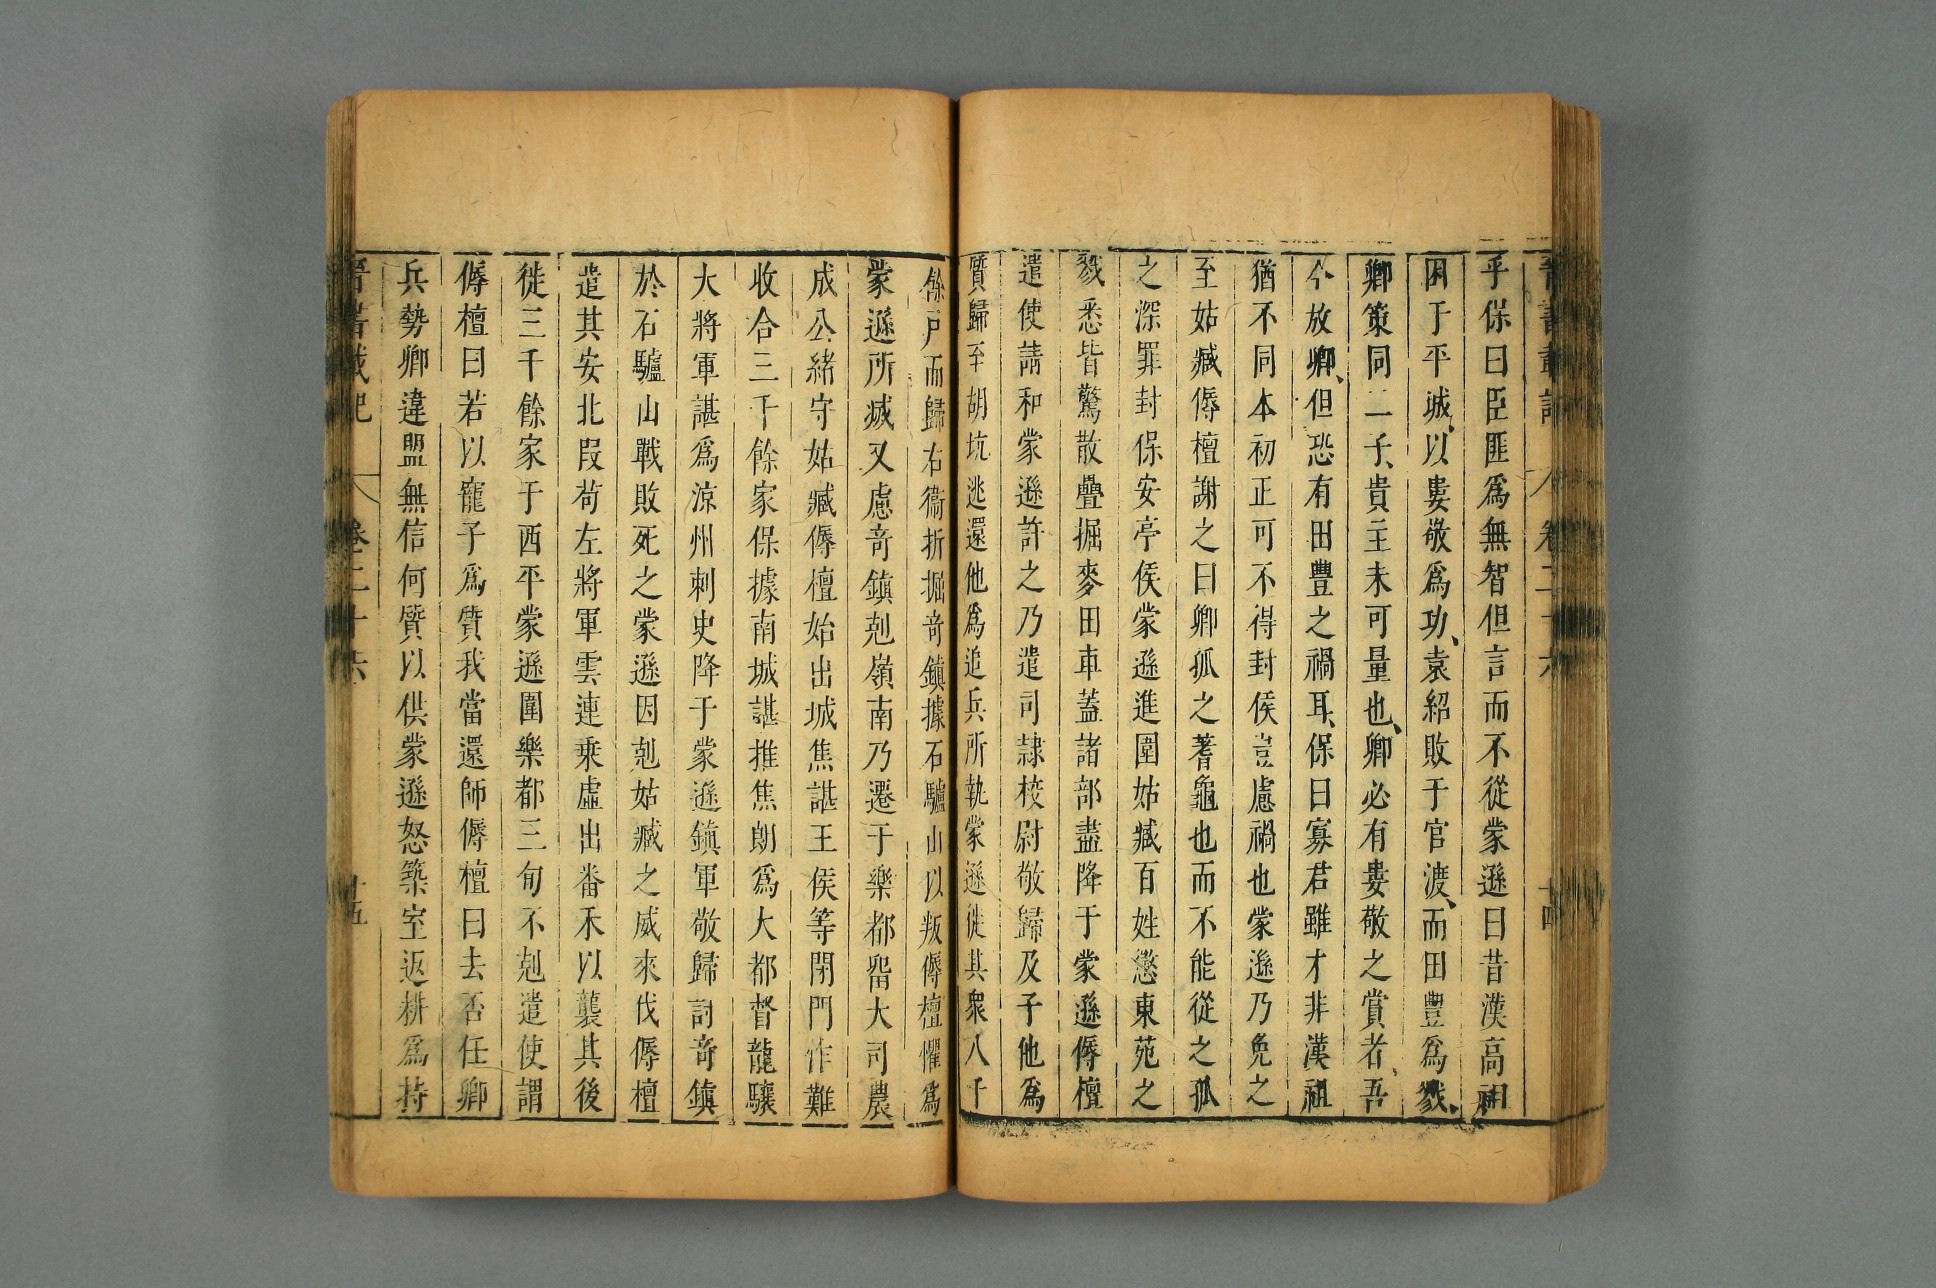 晉書載記 卷二十六 十四
乎保曰臣匪爲無智但言而不從蒙遜曰昔漢高祖
困于平城以婁敬爲功袁紹敗于官渡而田豐爲戮
卿策同二子貴主未可量也卿必有婁敬之賞者吾
今放卿但恐有田豐之禍耳保曰寡君雖才非漢祖
猶不同本初正可不得封侯豈慮禍也蒙遜乃免之
至姑臧傉檀謝之曰卿孤之蓍龜也而不能從之孤
之深罪封保安亭侯蒙遜進圍姑臧百姓懲東苑之
戮悉皆驚散疊掘麥田車蓋諸部盡降于蒙遜傉檀
遣使請和蒙遜許之乃遣司隷校尉敬歸及子他爲
質歸至胡坑逃還他爲追兵所執蒙遜徙其衆八千
餘戸而歸右衞折掘竒鎮據石驢山以叛傉檀懼爲
蒙遜所滅又慮竒鎮剋嶺南乃遷于樂都畱大司農
成公緒守姑臧傉檀始出城焦諶王侯等閉門作難
收合三千餘家保據南城諶推焦朗爲大都督龍驤
大將軍諶爲涼州刺史降于蒙遜鎮軍敬歸討竒鎮
於石驢山戰敗死之蒙遜因剋姑臧之威來伐傉檀
遣其安北叚苟左將軍雲連乘虛出番禾以襲其後
徙三千餘家于西平蒙遜圍樂都三旬不剋遣使謂
傉檀曰若以寵子爲質我當還師傉檀曰去否任卿
兵勢卿違盟無信何質以供蒙遜怒築室返耕爲持
晉書載記 卷二十六 十五